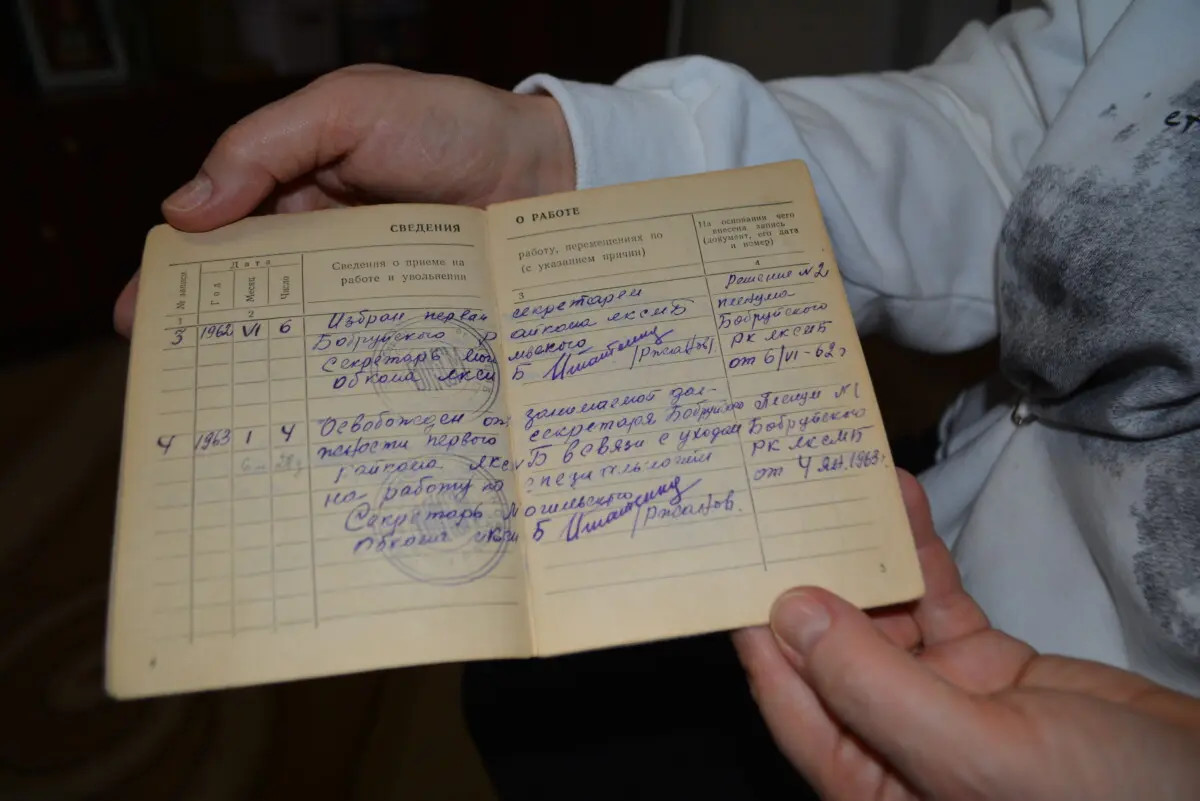 СВЕДЕНИЯ
№ записи
Дата
Год
Месяц
Число
Сведения о приеме на
работе и увольнении
1
2
3 1962 VI 6 Избран первым
Бобруйского р
Секретарь Мог
обкома ЛКСМ
4 1963 I 4 Освобожден от
жности первого
райкома ЛКСМ
на работу по
Секретарь Мо
обкома ЛКСМ
4
О РАБОТЕ
работу, перемещениях по
(с указанием причин)
На основании чего
внесена запись
(документ, его дата
и номер)
3
4
секретарем
айкома ЛКСМБ
илевского
Б /Ржанов/
Решение №2
пленума
Бобруйского
РК ЛКСМБ
от 6/VI-62 г
занимаемой дол-
секретаря Бобруйско
Б в связи с уходом
специальности
гилевского
Б /Ржанов.
Пленум №1
Бобруйского
РК ЛКСМБ
от 4 ян. 1963 г.
5